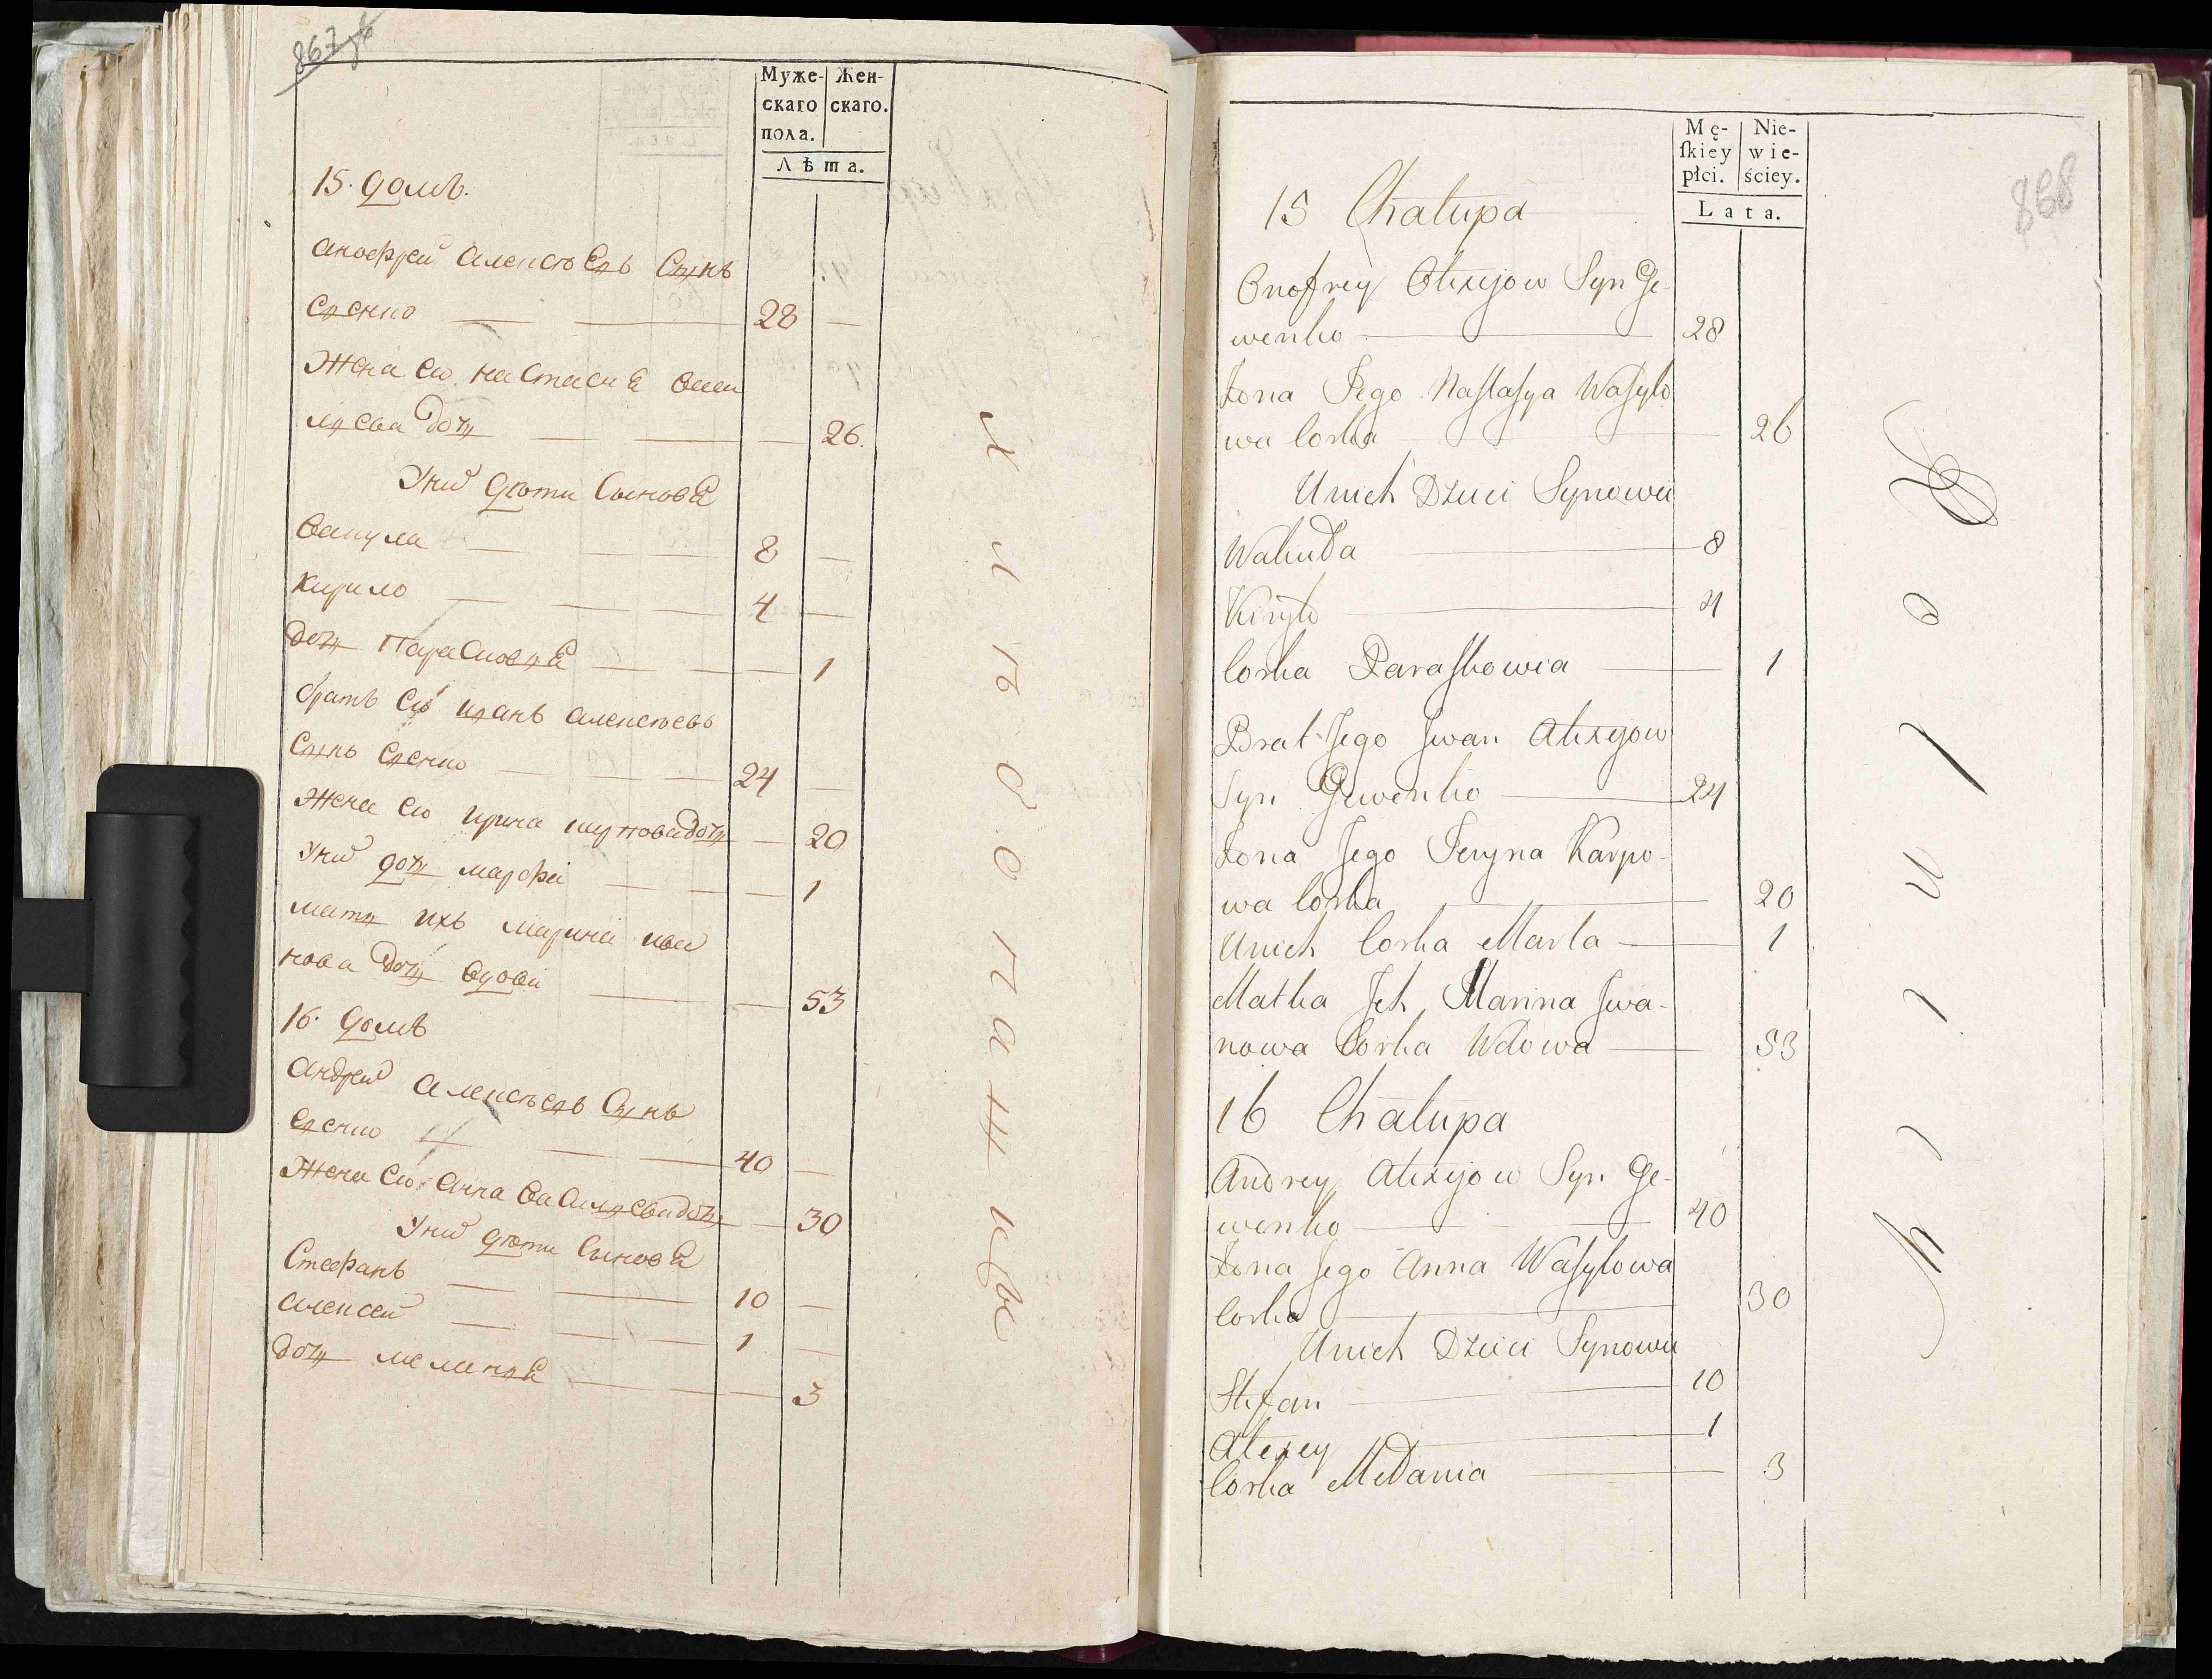 867об
Муже- Жен-
скаго скаго.
пола.
Лѣта.
15. домъ.
Анофрей Алексѣевъ Сынъ
Евенко — — 28 —
Жена Ево Настасиѣ Васи
льева дочь — — — 26.
У них дѣти Сыновѣ
Вакула — — — 8 —
Кирило — — — 4 —
дочь Парасковьѣ — — — 1
братъ Ево иванъ алексѣевъ
Сынъ Евенко — — — 24 —
Жена Ево ирина карповадочь — 20
У них дочь марфа — — — 1
мать ихъ марина ива
нова дочь вдова — — 53
16. домъ
Андрей Алексѣевъ Сынъ
Евенко — — — 40 —
Жена Ево Анна Васильевадочь — 30
У них дѣти Сыновѣ
Стефанъ — — 10 —
алексей — — — 1 —
дочь меланьѣ — — — 3
868
Mę- Nie-
ſkiey wie-
płci. ściey.
Lata.
15 Chałupa
Onofrey Alexyiow Syn Je-
wenko — 28
Żona Jego Nastasya Wasyło
wa Corka — 26
Unich Dzieci Synowie
Wakuła — 8
Kiryło — 4
Corka Paraskowia — 1
Brat Jego Jwan Alexyiow
Syn Jewenko — 24
Żona Jego Jeryna Karpo-
wa Corka — 20
Unich Corka Marta — 1
Matka Jch Marina Jwa-
nowa Corka Wdowa — 53
16 Chałupa
Andrey Alexyiow Syn Je-
wenko — 40
Żona Jego Anna Wasyłowa
Corka — 30
Unich Dzieci Synowie
Stefan — 10
Alexey — 1
Corka Mełania — 3